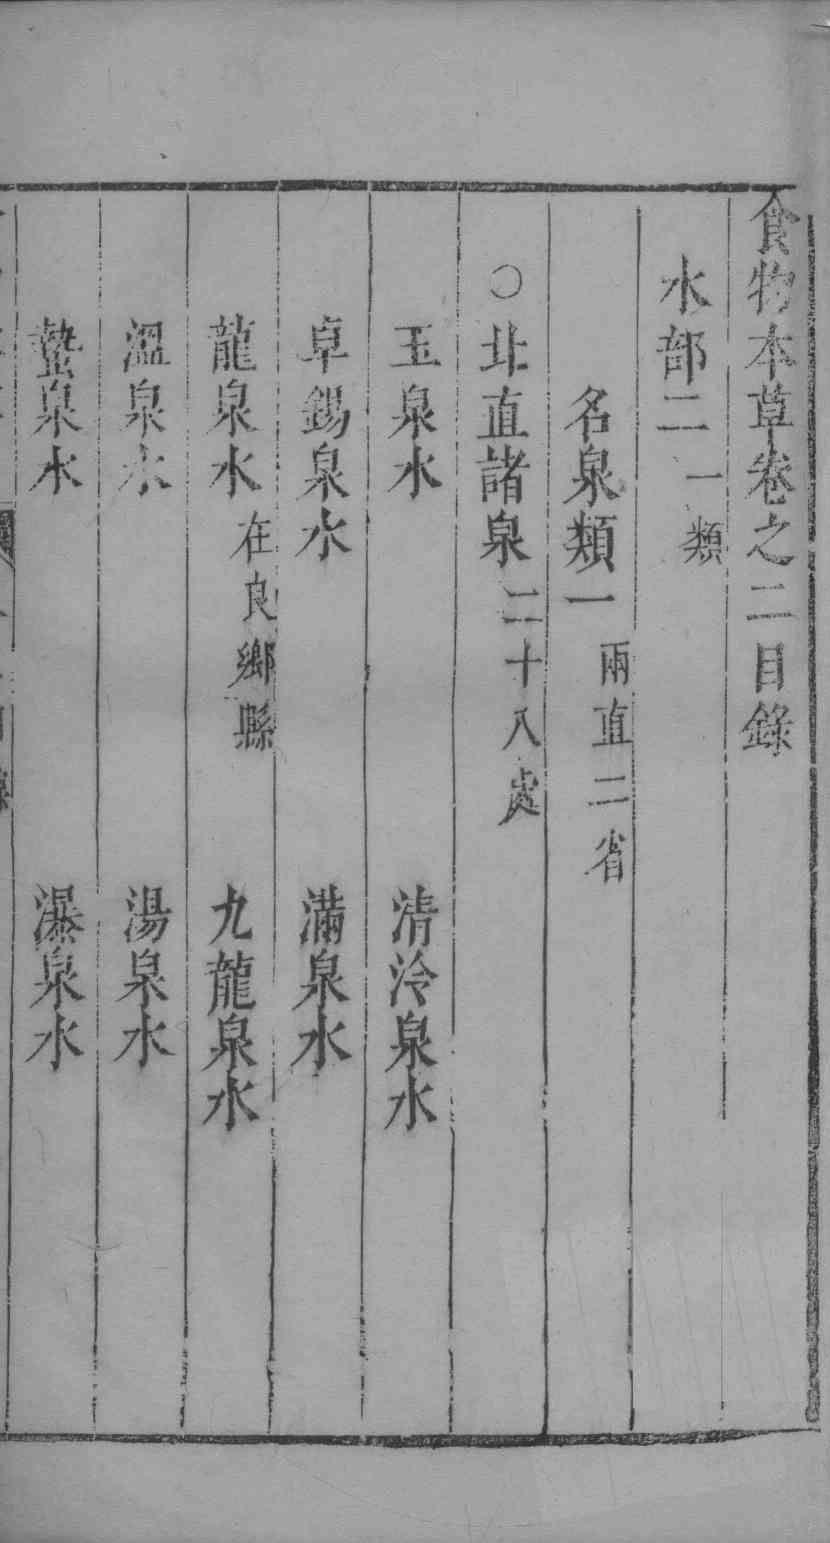 食物本草卷之二目錄
水部二 一類
名泉類一 兩直二省
○北直諸泉 二十八處
玉泉水 清泠泉水
卓錫泉水 滿泉水
龍泉水 在良鄉縣 九龍泉水
溫泉水 湯泉水
蟄泉水 瀑泉水